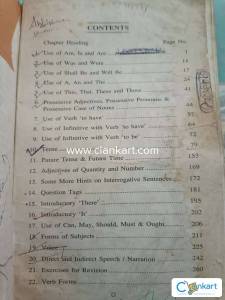 CONTENTS
Chapter Heading Page No.
1. Use of Am, Is and Are 1
2. Use of Was and Were 14
3. Use of Shall Be and Will Be
4. Use of A, An and The 24
5. Use of This, That, These and Those
6. Possessive Adjectives, Possessive Pronouns &
Possessive Case of Nouns
7. Use of Verb 'to have'
8. Use of Infinitive with Verb 'to have'
9. Use of Infinitive with Verb 'to be'
10. Tense
www.ciankart.com
11. Future Tense & Future Time 153
12. Adjectives of Quantity and Number 169
13. Some More Hints on Interrogative Sentences 172
14. Question Tags 181
15. Introductory 'There' 195
16. Introductory 'It' 202
17. Use of Can, May, Should, Must & Ought 206
18. Forms of Subjects 211
19. Voice 225
20. Direct and Indirect Speech / Narration 242
21. Exercises for Revision 260
22. Verb Forms
Ciankart